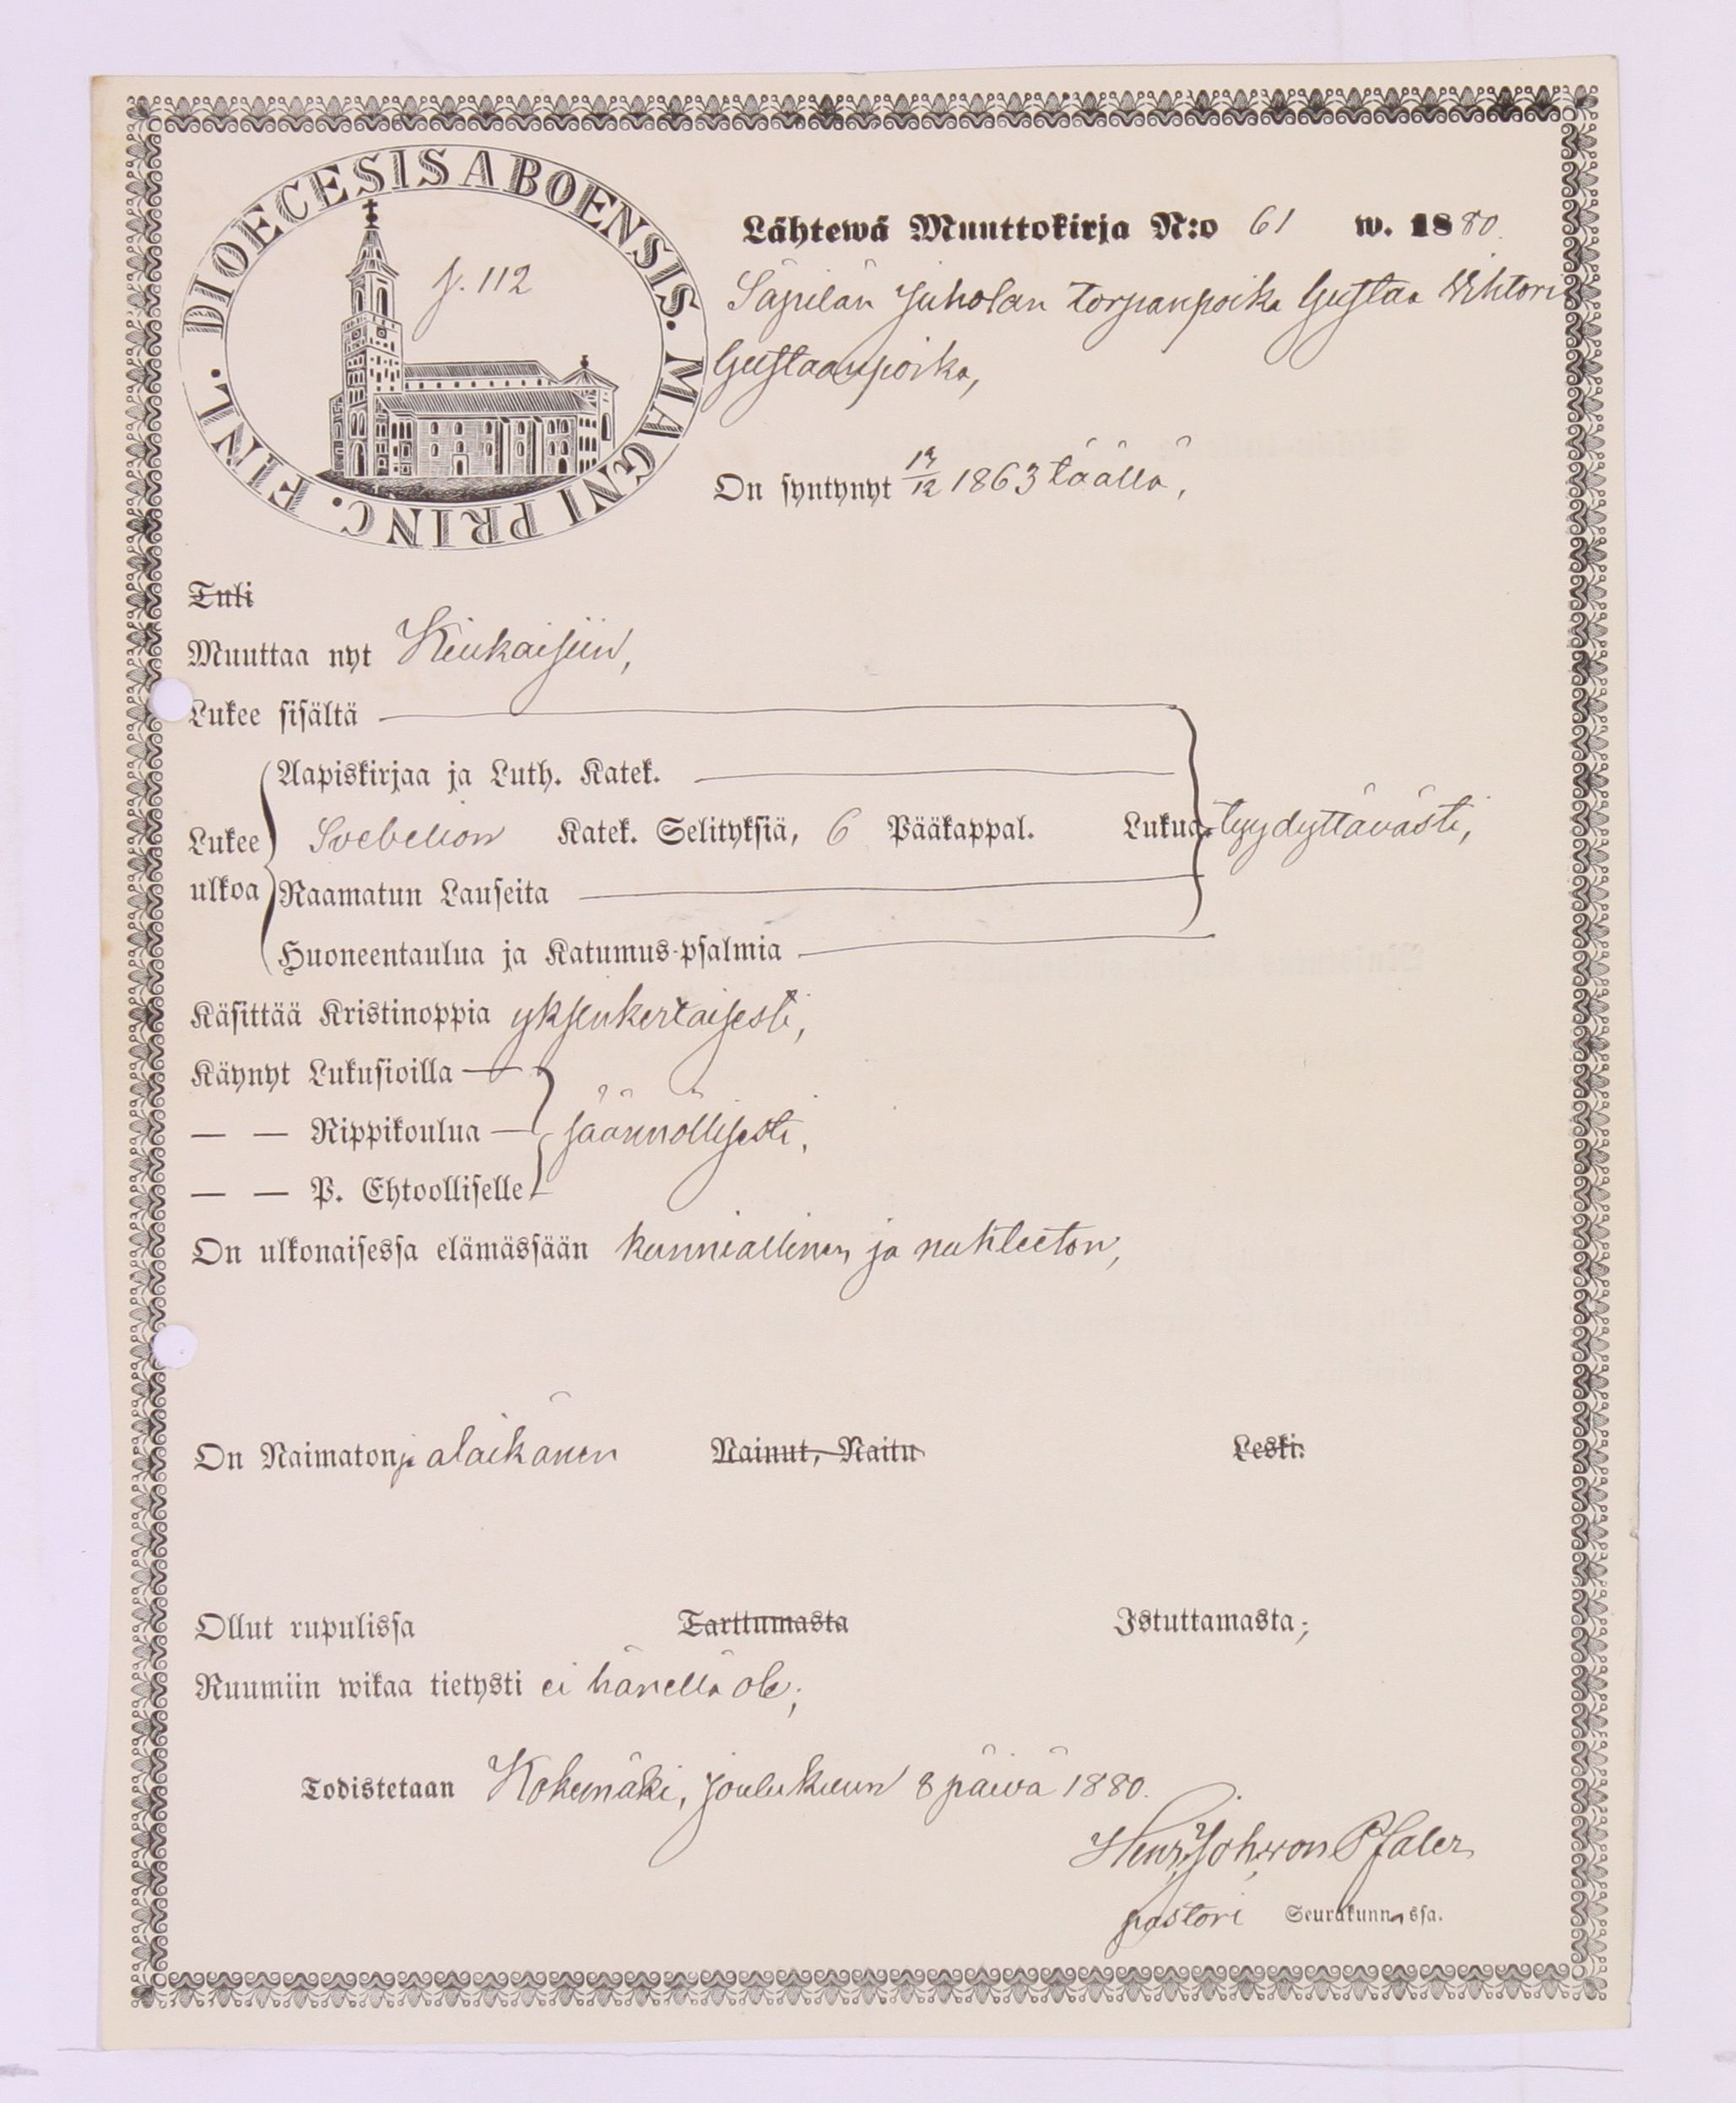 DIOECESIS ABOENSIS. MAGNI PRINC. FINL.
p. 112
Lähtewä Muuttokirja N:o 61 w. 1880.
Säpilän Juholan torpanpoika Gustaa Vihtori
Gustaanpoika,
On syntynyt 19/12 1863 täällä,
Tuli
Muuttaa nyt Kiukaisiin,
Lukee sisältä
Aapiskirjaa ja Luth. Katek.
Lukee ulkoa
Svebelion Katek. Selityksiä, 6 Pääkappal. Lukua tyydyttävästi,
Raamatun Lauseita
Huoneentaulua ja Katumus-psalmia
Käsittää Kristinoppia yksinkertaisesti,
Käynyt Lukusioilla
— — Rippikoulua säännöllisesti.
— — P. Ehtoolliselle
On ulkonaisessa elämässään kunniallinen ja nuhteeton,
On Naimaton ja alaikänen Nainut, Naitu Leski.
Ollut rupulissa Tarttumasta Istuttamasta;
Ruumiin wikaa tietysti ei hänellä ole;
Todistetaan Kokemäki, joulukuun 8 päivä 1880.
Henr. Joh. von Pfaler
pastori Seurakunnassa.